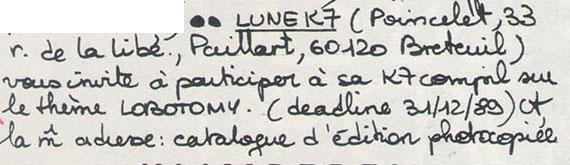 ●● LUNEK7 (Poincelet, 33
r. de la libé., Paillart, 60120 Breteuil)
vous invite à participer à sa K7 compil sur
le thème LOBOTOMY. (deadline 31/12/89) Et
la m̂ adresse: catalogue d'édition photocopiée